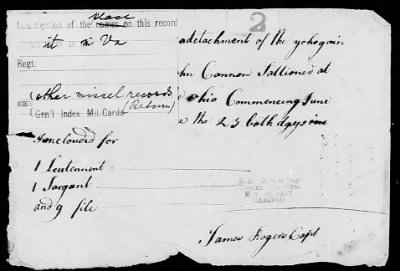 2
Identification of the names place on this record
it is in Va
Regt.
(other miscel. records
(Return)
(Gen'l Index Mil. Cards
adetachment of the yohogain
hn Cannon Sattioned at
ohio Commencing June
the 23 both days in
Inclouded for
1 Leutennent
1 Sargant
and 9 file
James Rogers Capt